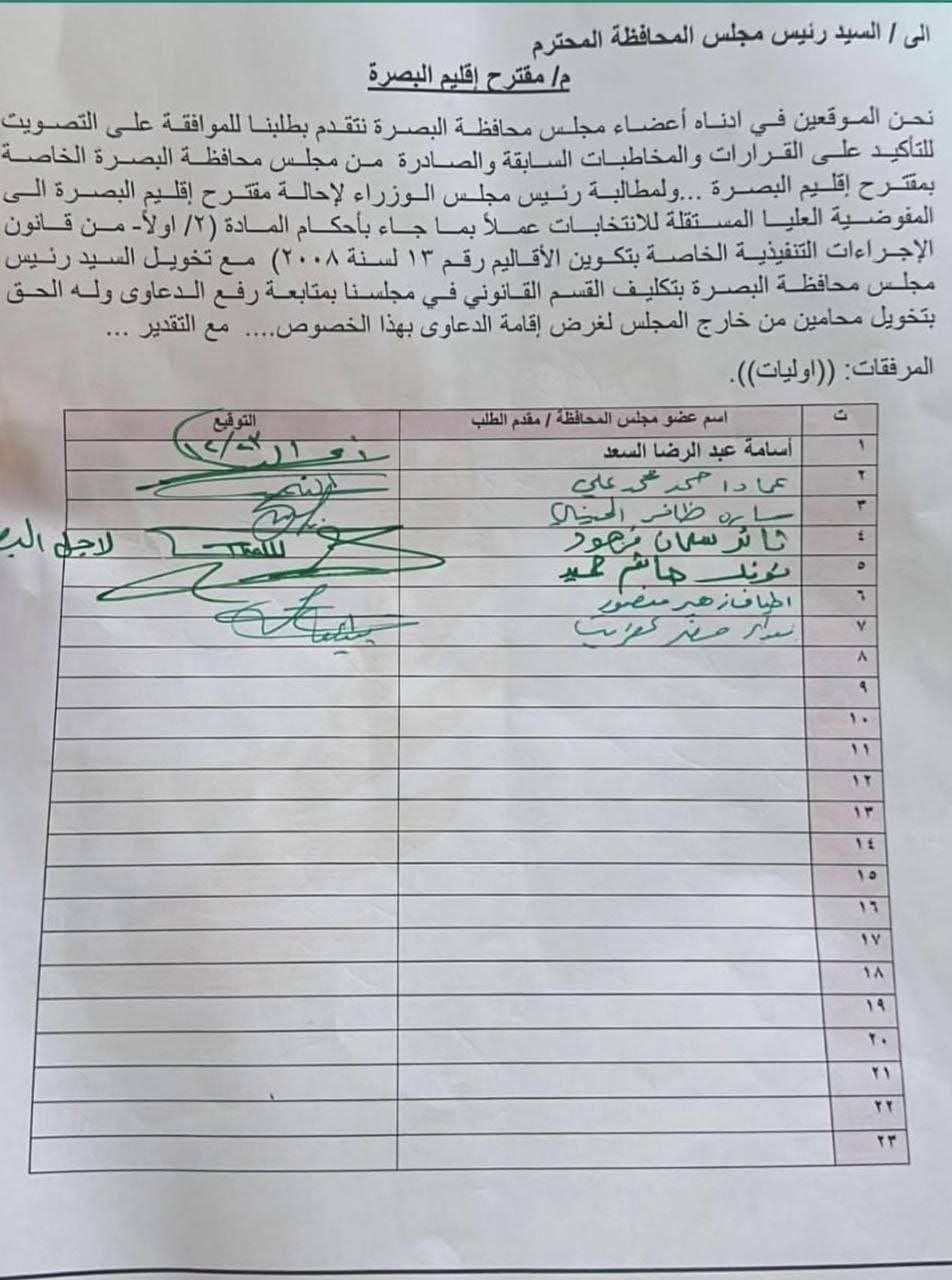 الى / السيد رئيس مجلس المحافظة المحترم
م/ مقترح إقليم البصرة
نحن الموقعين في ادناه أعضاء مجلس محافظة البصرة نتقدم بطلبنا للموافقة على التصويت
للتأكيد على القرارات والمخاطبات السابقة والصادرة من مجلس محافظة البصرة الخاصة
بمقترح إقليم البصرة ...ولمطالبة رئيس مجلس الوزراء لإحالة مقترح إقليم البصرة الى
المفوضية العليا المستقلة للانتخابات عملاً بما جاء بأحكام المادة (٢/ اولاً- من قانون
الإجراءات التنفيذية الخاصة بتكوين الأقاليم رقم ١٣ لسنة ٢٠٠٨) مع تخويل السيد رئيس
مجلس محافظة البصرة بتكليف القسم القانوني في مجلسنا بمتابعة رفع الدعاوى وله الحق
بتخويل محامين من خارج المجلس لغرض إقامة الدعاوى بهذا الخصوص.... مع التقدير ...
المرفقات: ((اوليات)).
ت اسم عضو مجلس المحافظة / مقدم الطلب التوقيع
١ أسامة عبد الرضا السعد
٢ عماد احمد محمد علي
٣ ساره ظافر الحسيني
٤ ثائر سلمان لاجل
٥ هاشم حميد
٦ اطياف زهير منصور
٧
٨
٩
١٠
١١
١٢
١٣
١٤
١٥
١٦
١٧
١٨
١٩
٢٠
٢١
٢٢
٢٣